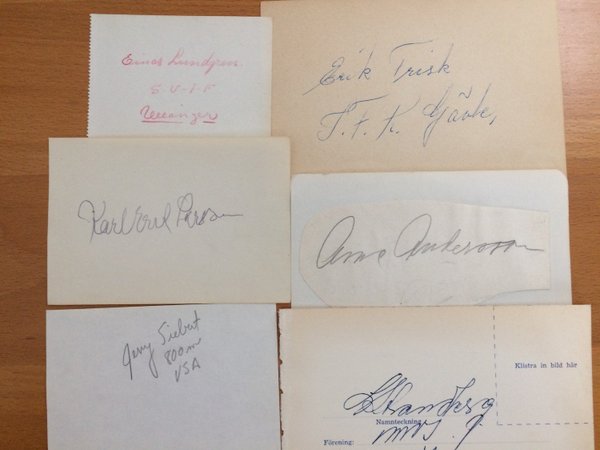 Einar Lundgren.
S-U-I-F
Erik Trisk
T.F.K. Gävle,
Karl Erik Larsson
Arne Andersson
Jerry Siebert
800m
USA
Klistra in bild här
LStrandberg
Namnteckning
Förening: